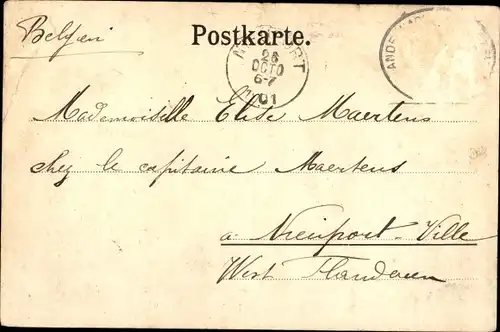 Postkarte.
Belgien
26
OCTO
6-7
01
Mademoiselle Elise Maertens
chez le capitaine Maertens
a Nieuport-Ville
West Flanderen